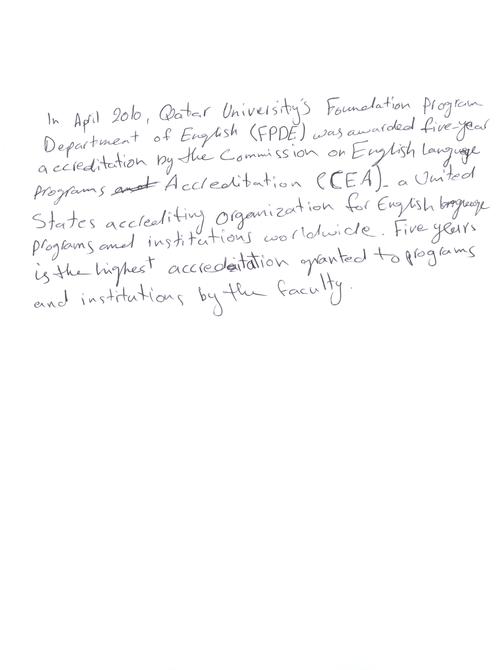 In April 2010, Qatar University's Foundation Program
Department of English (FPDE) was awarded five-year
accreditation by the Commission on English Language
Programs Accreditation (CEA) - a United
States accrediting organization for English language
programs and institutions worldwide. Five years
is the highest accreditation granted to programs
and institutions by the faculty.